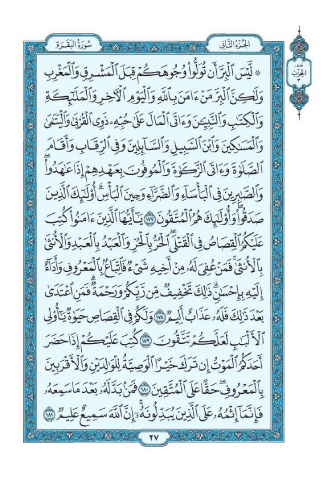 الجزء الثاني
سورة البقرة
۞ لَّيْسَ الْبِرَّ أَن تُوَلُّوا وُجُوهَكُمْ قِبَلَ الْمَشْرِقِ وَالْمَغْرِبِ
وَلَٰكِنَّ الْبِرَّ مَنْ ءَامَنَ بِاللَّهِ وَالْيَوْمِ الْءَاخِرِ وَالْمَلَٰئِكَةِ
وَالْكِتَٰبِ وَالنَّبِيِّۦنَ وَءَاتَى الْمَالَ عَلَىٰ حُبِّهِۦ ذَوِي الْقُرْبَىٰ وَالْيَتَٰمَىٰ
وَالْمَسَٰكِينَ وَابْنَ السَّبِيلِ وَالسَّائِلِينَ وَفِي الرِّقَابِ وَأَقَامَ
الصَّلَوٰةَ وَءَاتَى الزَّكَوٰةَ وَالْمُوفُونَ بِعَهْدِهِمْ إِذَا عَٰهَدُوا
وَالصَّٰبِرِينَ فِي الْبَأْسَاءِ وَالضَّرَّاءِ وَحِينَ الْبَأْسِ أُولَٰئِكَ الَّذِينَ
صَدَقُوا وَأُولَٰئِكَ هُمُ الْمُتَّقُونَ ١٧٧ يَٰأَيُّهَا الَّذِينَ ءَامَنُوا كُتِبَ
عَلَيْكُمُ الْقِصَاصُ فِي الْقَتْلَى الْحُرُّ بِالْحُرِّ وَالْعَبْدُ بِالْعَبْدِ وَالْأُنثَىٰ
بِالْأُنثَىٰ فَمَنْ عُفِيَ لَهُۥ مِنْ أَخِيهِ شَيْءٌ فَاتِّبَاعٌ بِالْمَعْرُوفِ وَأَدَاءٌ
إِلَيْهِ بِإِحْسَٰنٍ ذَٰلِكَ تَخْفِيفٌ مِّن رَّبِّكُمْ وَرَحْمَةٌ فَمَنِ اعْتَدَىٰ
بَعْدَ ذَٰلِكَ فَلَهُۥ عَذَابٌ أَلِيمٌ ١٧٨ وَلَكُمْ فِي الْقِصَاصِ حَيَوٰةٌ يَٰأُولِي
الْأَلْبَٰبِ لَعَلَّكُمْ تَتَّقُونَ ١٧٩ كُتِبَ عَلَيْكُمْ إِذَا حَضَرَ
أَحَدَكُمُ الْمَوْتُ إِن تَرَكَ خَيْرًا الْوَصِيَّةُ لِلْوَٰلِدَيْنِ وَالْأَقْرَبِينَ
بِالْمَعْرُوفِ حَقًّا عَلَى الْمُتَّقِينَ ١٨٠ فَمَن بَدَّلَهُۥ بَعْدَ مَا سَمِعَهُۥ
فَإِنَّمَا إِثْمُهُۥ عَلَى الَّذِينَ يُبَدِّلُونَهُۥ إِنَّ اللَّهَ سَمِيعٌ عَلِيمٌ ١٨١
٢٧